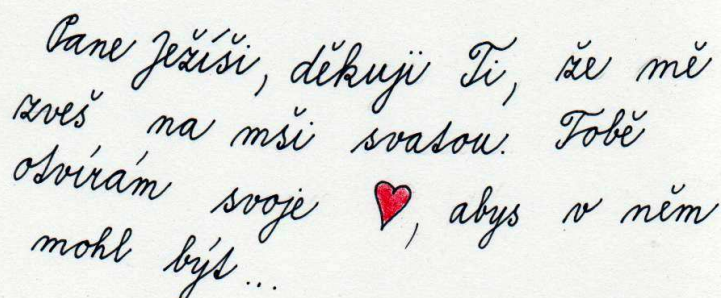 Pane Ježíši, děkuji Ti, že mě
zveš na mši svatou. Tobě
otvírám svoje ❤, abys v něm
mohl být...